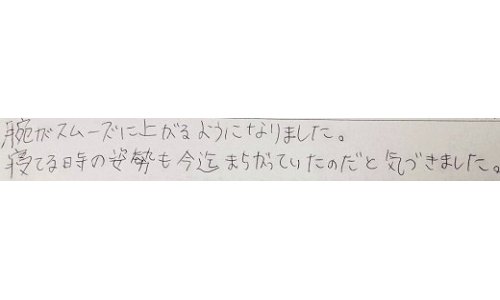 腕がスムーズに上がるようになりました。
寝てる時の姿勢も今迄まちがっていたのだと気づきました。